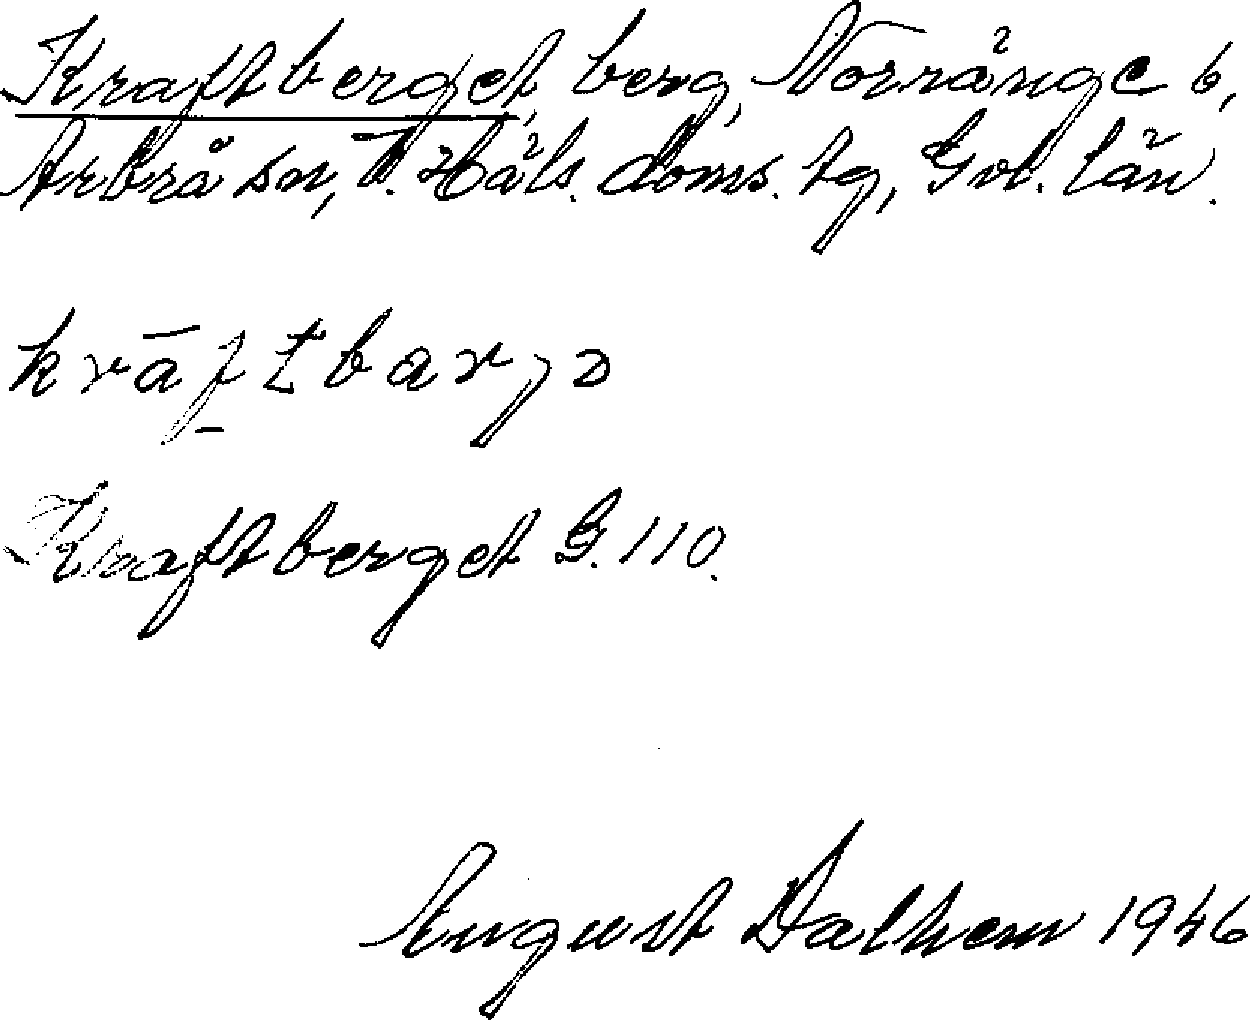 Kraftberget, berg, Norränge b,
Arbrå sn, V. Häls. doms. tg, Gvl. län.
Kraftberget G. 110.
August Dalhem 1946